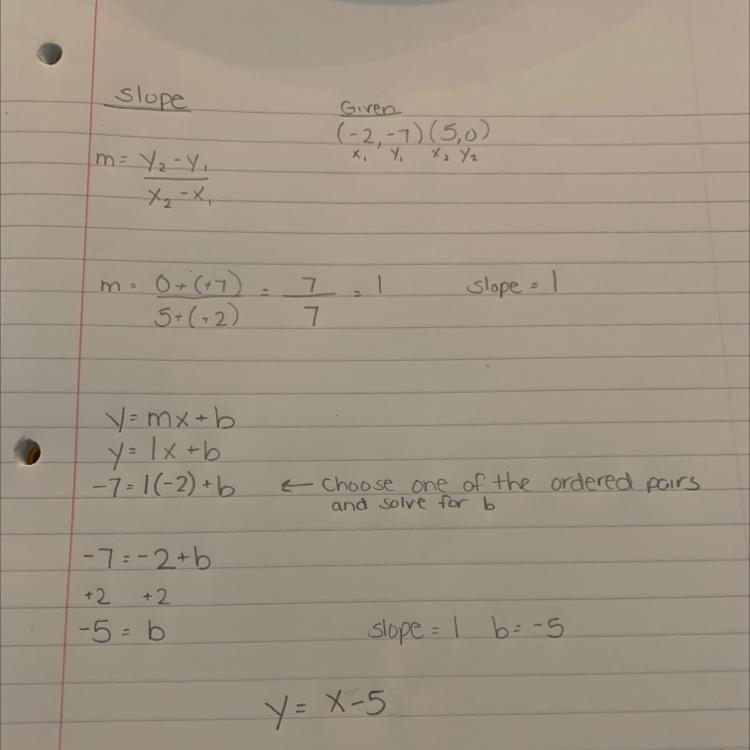 slope
Given
(-2, -7) (5,0)
x₁ y₁ x₂ y₂
m = y₂ - y₁
x₂ - x₁
m = 0+(+7) = 7 = 1 slope = 1
5+(+2) 7
y = mx + b
y = 1x + b
-7 = 1(-2) + b ← choose one of the ordered pairs
and solve for b
-7 = -2 + b
+2 +2
-5 = b slope = 1 b = -5
y = x - 5